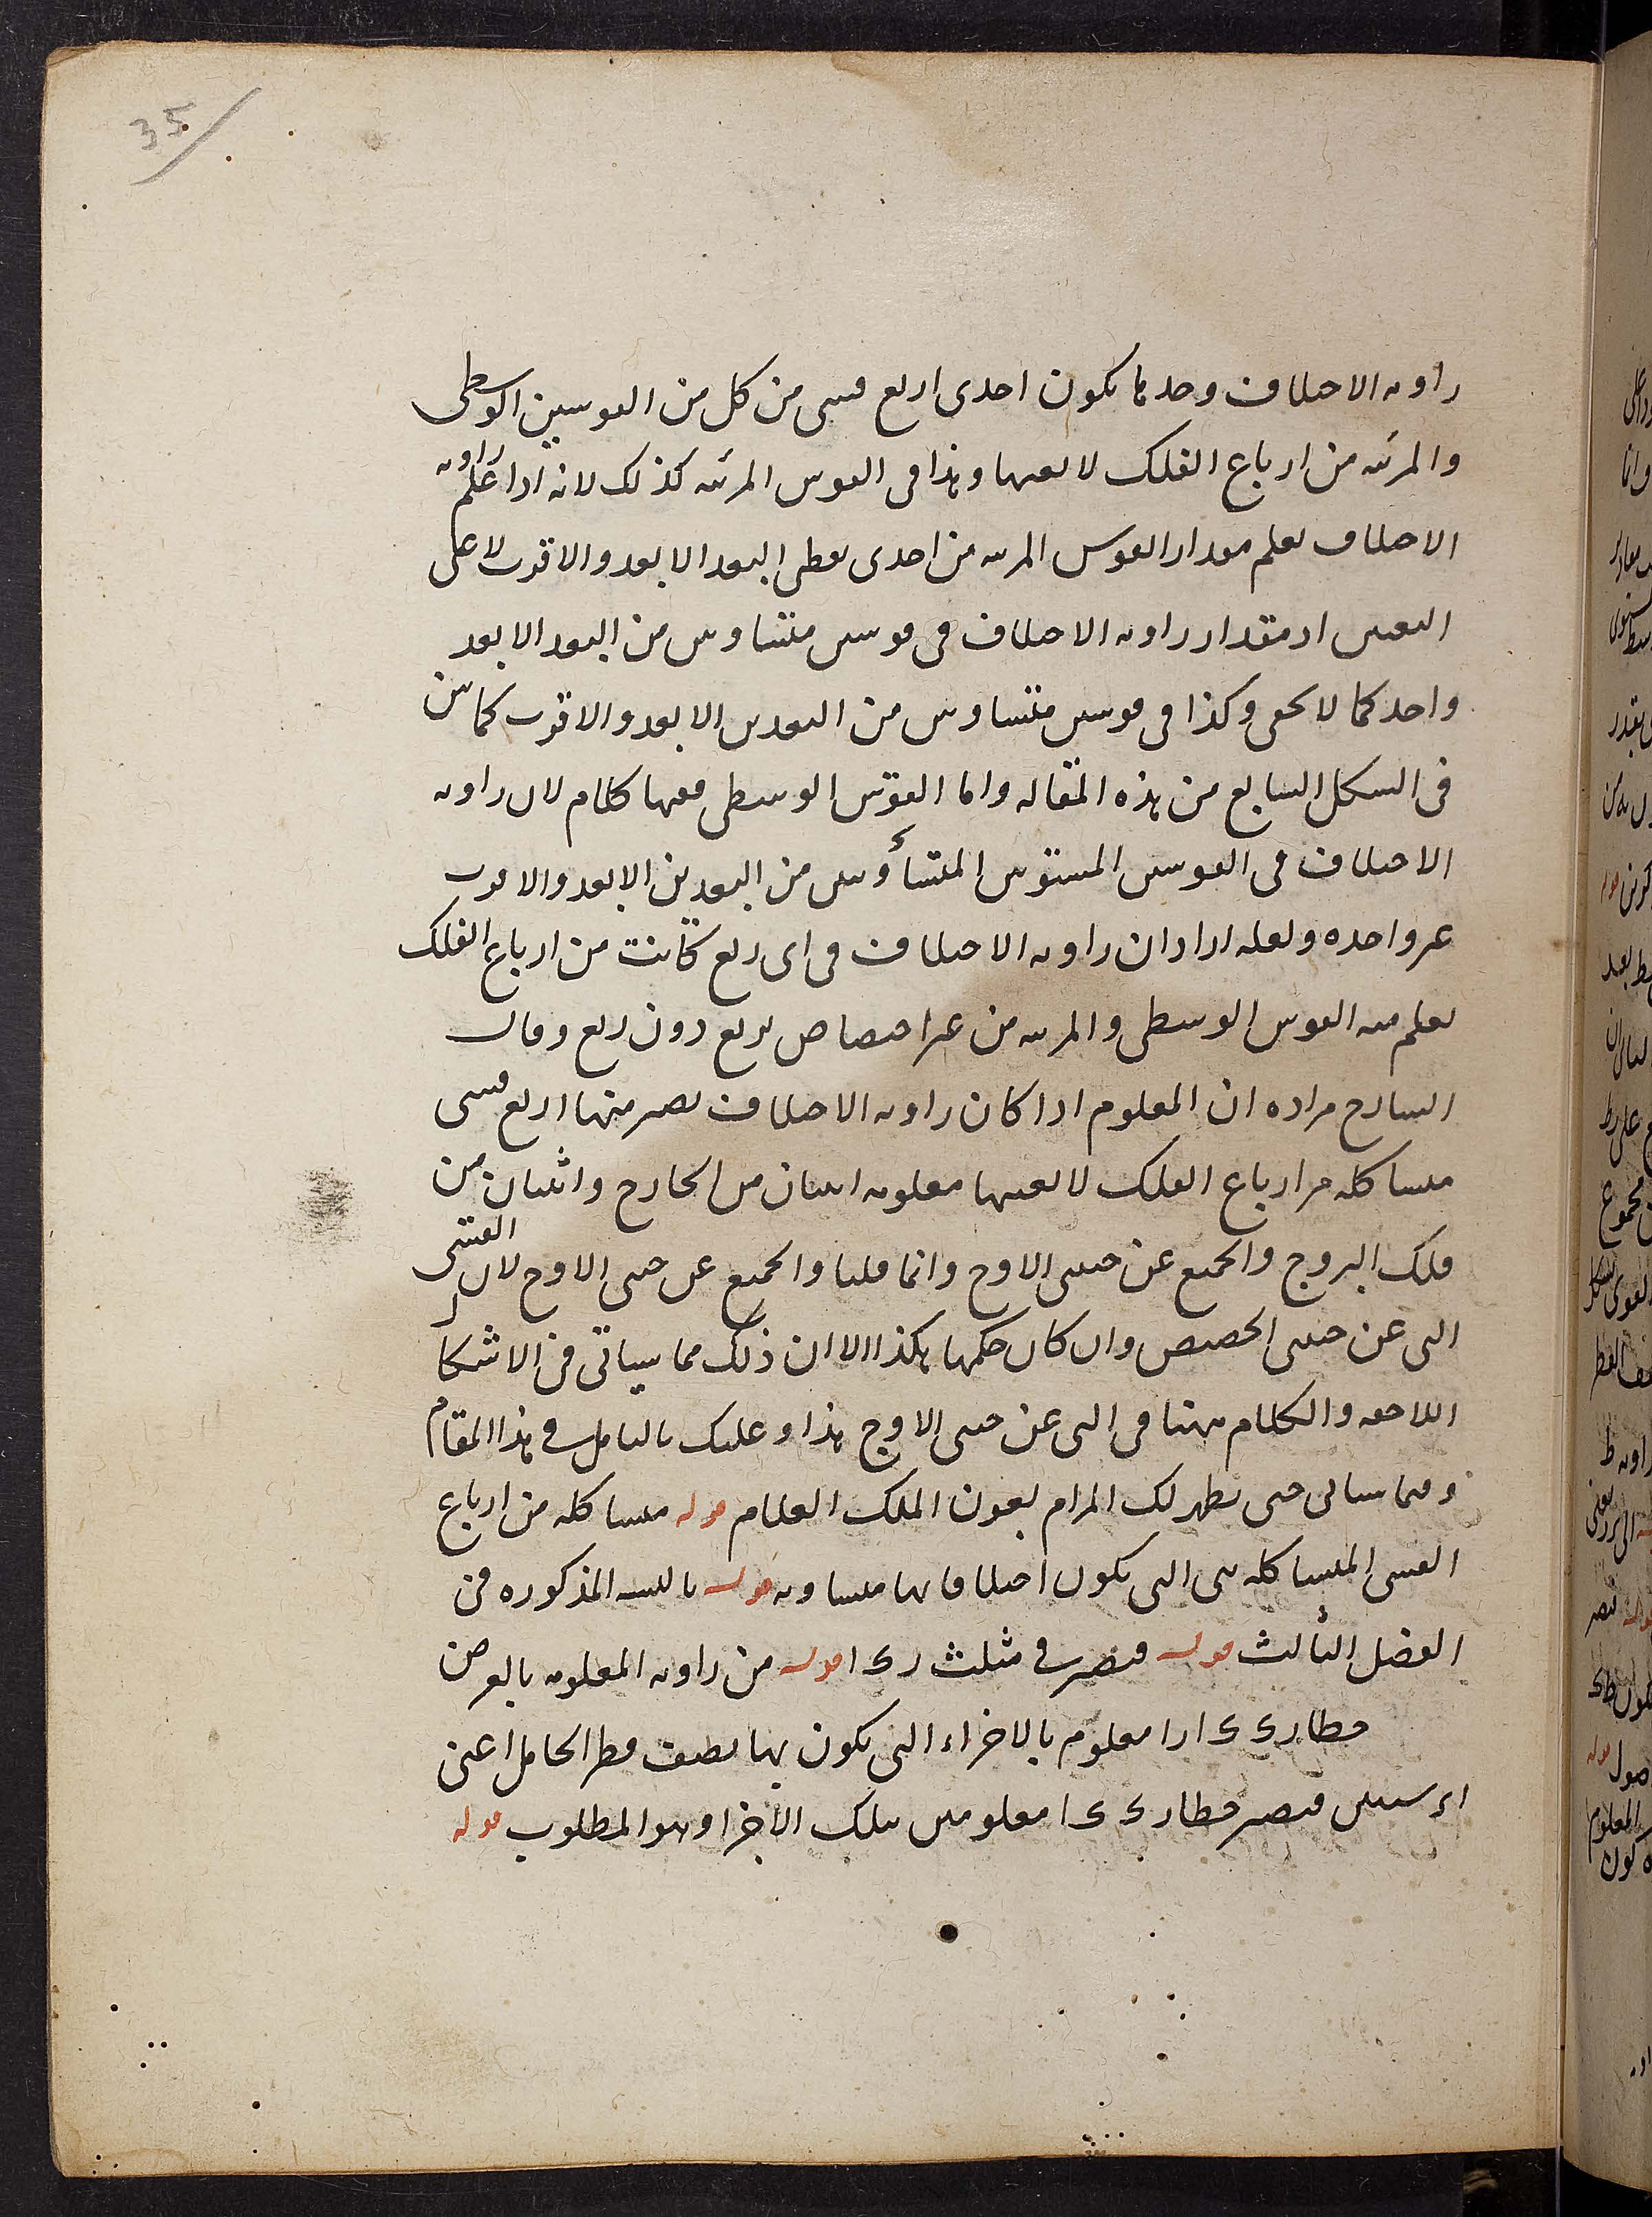 35
زاويه الاختلاف وحدها يكون احدى اربع قسى من كل من القوسين الوسطى
والمرئيه من ارباع الفلك لا بعينها وهذا فى القوس المرئيه كذلك لانه اذا علم زاويه
الاختلاف يعلم مقدار القوس المرئيه من احدى نقطى البعد الابعد والاقرب لا على
التعيين اذ مقدار زاويه الاختلاف فى قوسين متساويين من البعد الابعد
واحد كما لا يخفى وكذا فى قوسين متساويين من البعدين الابعد والاقرب كما بين
فى الشكل السابع من هذه المقاله واما القوس الوسطى ففيها كلام لان زاويه
الاختلاف فى القوسين المستويين المتساويين من البعدين الابعد والاقرب
غير واحده ولعله اراد ان زاويه الاختلاف فى اى ربع كانت من ارباع الفلك
يعلم منه القوس الوسطى والمرئيه من غير اختصاص بربع دون ربع وقال
الشارح مراده ان المعلوم اذا كان زاويه الاختلاف يصير منها اربع قسى
متشاكله من ارباع الفلك لا بعينها معلومه اثنان من الخارج واثنان من
فلك البروج والجميع عن جنبتى الاوج وانما قلنا والجميع عن جنبتى الاوج لان القسى
التى عن جنبتى الحضيض وان كان حكمها هكذا الا ان ذلك مما سياتى فى الاشكال
اللاحقه والكلام ههنا فى التى عن جنبتى الاوج هذا وعليك بالتامل فى هذا المقام
وفيما سياتى حتى يظهر لك المرام بعون الملك العلام قوله متشاكله من ارباع
القسى المتشاكله هى التى يكون اختلافاتها متساويه قوله بالنسب المذكوره فى
الفصل الثالث قوله فيصير فى مثلث ر ى ا قوله من زاويه المعلومه بالعرض
خطا ر ى ى ا ر ا معلوم بالاجزاء التى يكون بها نصف قطر الحامل اعنى
ا ر ستين فيصير خطا ر ى ى ا معلومين بتلك الاجزا وهو المطلوب قوله